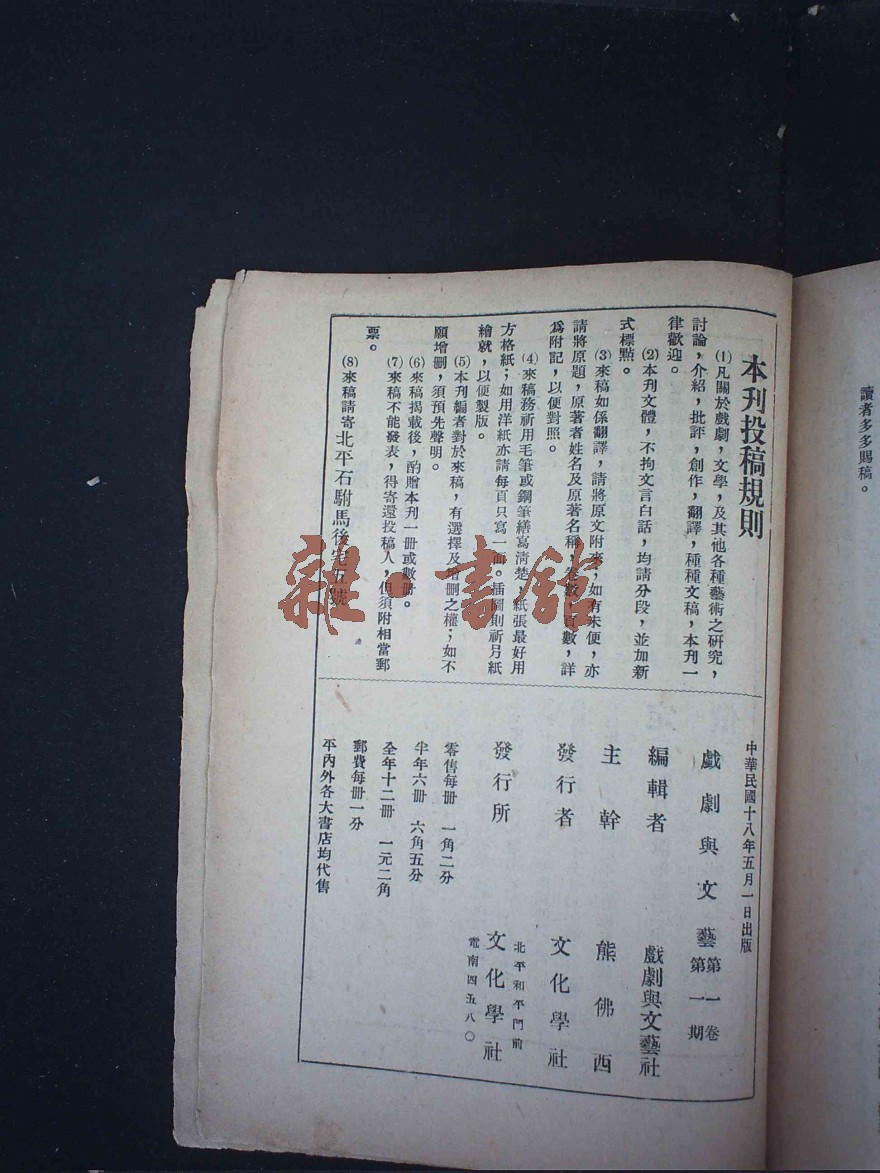 讀者多多賜稿。
本刊投稿規則
⑴凡關於戲劇,文學,及其他各種藝術之研究,
討論,介紹,批評,創作,翻譯,種種文稿,本刊一
律歡迎。
⑵本刊文體,不拘文言白話,均請分段,並加新
式標點。
⑶來稿如係翻譯,請將原文附來;如有未便,亦
請將原題,原著者姓名及原著名稱,卷數,頁數,詳
爲附記,以便對照。
⑷來稿務祈用毛筆或鋼筆繕寫清楚,紙張最好用
方格紙;如用洋紙亦請每頁只寫一面。插圖則祈另紙
繪就,以便製版。
⑸本刊編者對於來稿,有選擇及增刪之權;如不
願增刪,須預先聲明。
⑹來稿揭載後,酌贈本刊一冊或數冊。
⑺來稿不能發表,得寄還投稿人,但須附相當郵
票。
⑻來稿請寄北平石駙馬後宅五號
中華民國十八年五月一日出版
戲劇與文藝 第一卷 第一期
編輯者 戲劇與文藝社
主幹 熊佛西
發行者 文化學社
發行所 文化學社
北平和平門前
電南四五八〇
零售每冊 一角二分
半年六冊 六角五分
全年十二冊 一元二角
郵費每冊一分
平內外各大書店均代售
雜·書館